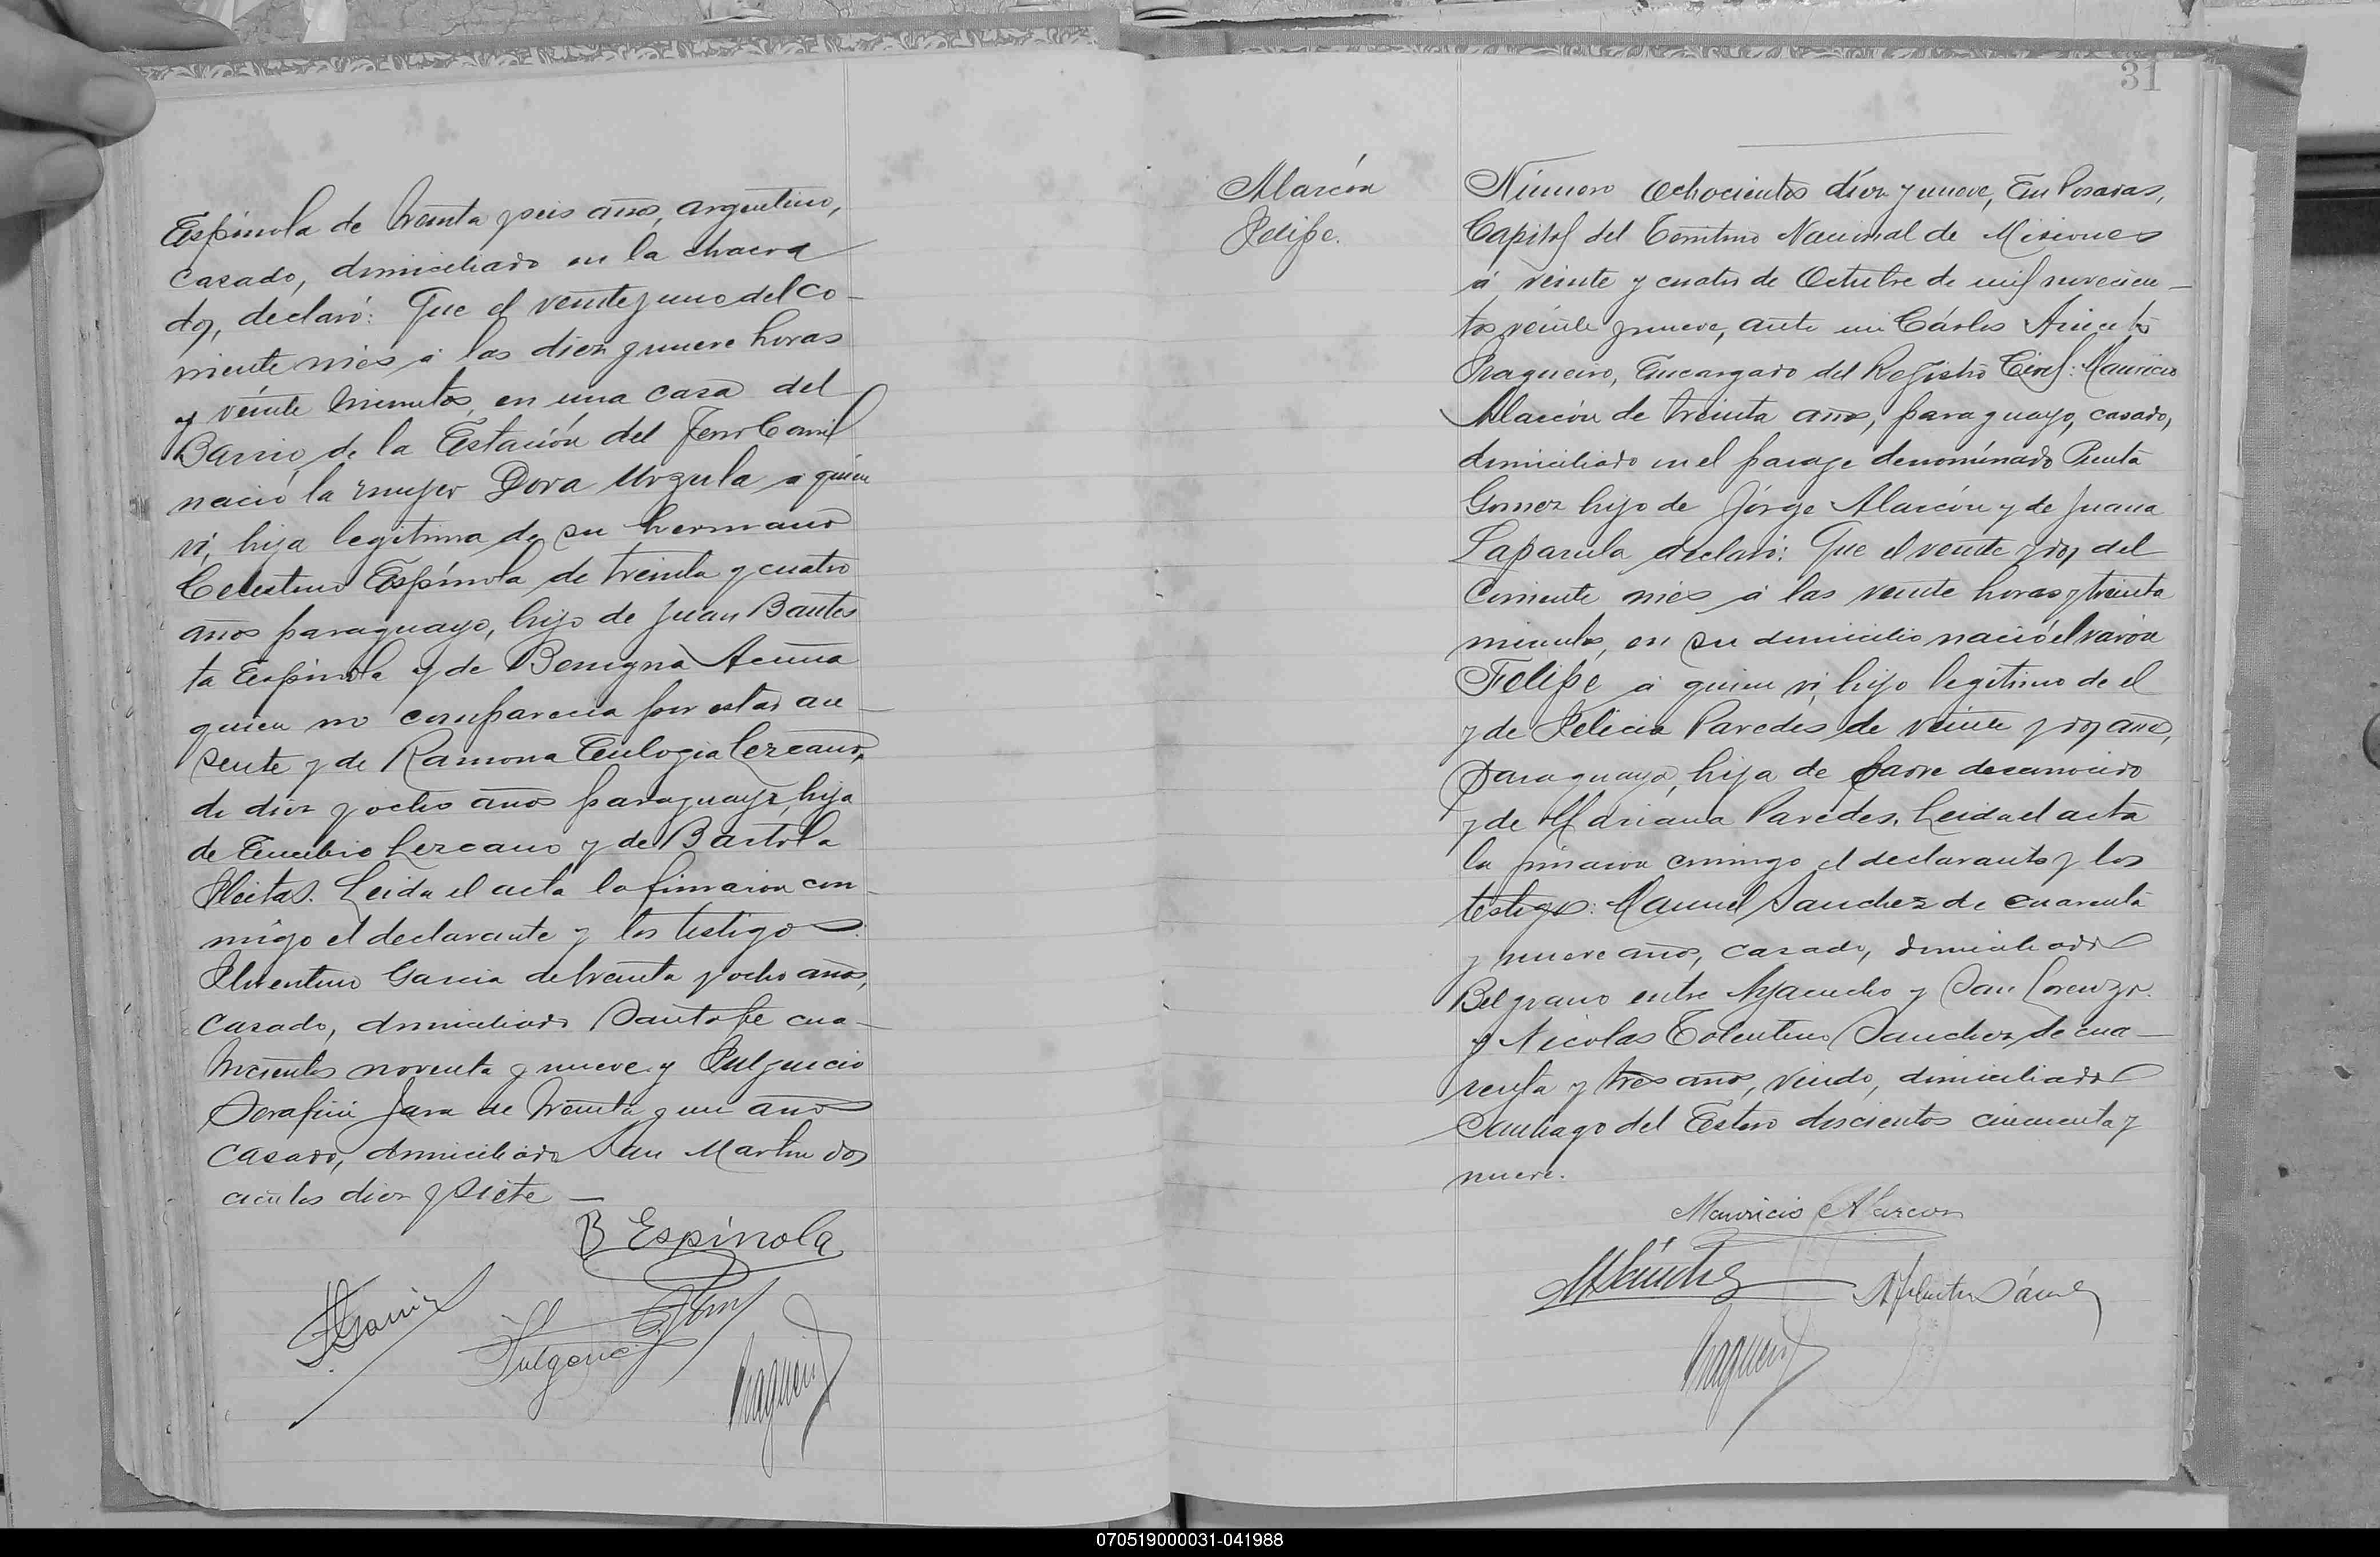 Espínola de treinta y seis años, argentino,
casado, domiciliado en la chacra
dos, declaró: Que el veinte y uno del co-
rriente mes á las diez y nueve horas
y veinte minutos, en una casa del
Barrio de la Estación del Ferro Carril
nació la mujer Dora Urzula a quien
ví, hija legítima de su hermano
Celestino Espínola de treinta y cuatro
años paraguayo, hijo de Juan Bautis
ta Espínola y de Benigna Acuña
quien no comparecia por estar au-
sente y de Ramona Eulogia Lezcano,
de diez y ocho años paraguaya, hija
de Eucebio Lezcano y de Bartola
Fleitas. Leida el acta la firmaron con-
migo el declarante y los testigos:
Florentino Garcia de treinta y ocho años,
casado, domiciliado Santa fe cua-
trocientos noventa y nueve y Fulgencio
Serafin Jara de treinta y un años
casado, domiciliado San Martin dos
cientos diez y siete —
B Espínola
F Garcia
Fulgencio S. Jara
31
Alarcón
Felipe.
Número Ochocientos diez y nueve, En Posadas,
Capital del Territorio Nacional de Misiones
á veinte y cuatro de Octubre de mil novecien-
tos veinte y nueve, ante mi Cárlos
Encargado del Registro Civil: Mauricio
Alarcón de treinta años, paraguayo, casado,
domiciliado en el paraje denominado Punta
Gomez hijo de Jórge Alarcón y de Juana
declaró: Que el veinte y dos del
corriente mes á las veinte horas y treinta
minutos, en su domicilio nació el varón
Felipe á quien ví, hijo legítimo de el
y de Felicia Paredes de veinte y dos años,
paraguaya, hija de padre desconocido
y de Mariana Paredes. Leida el acta
la firmaron conmigo el declarante y los
testigos: Manuel Sanchez de cuarenta
y nueve años, casado, domiciliado
Belgrano entre Ayacucho y San Lorenzo.
y Nicolas Tolentino Sanchez de cua-
renta y tres años, viudo, domiciliado
Santiago del Estero doscientos cincuenta y
nueve.
Mauricio Alarcon
M Sánchez
N Tolentino Sánchez
070519000031-041988